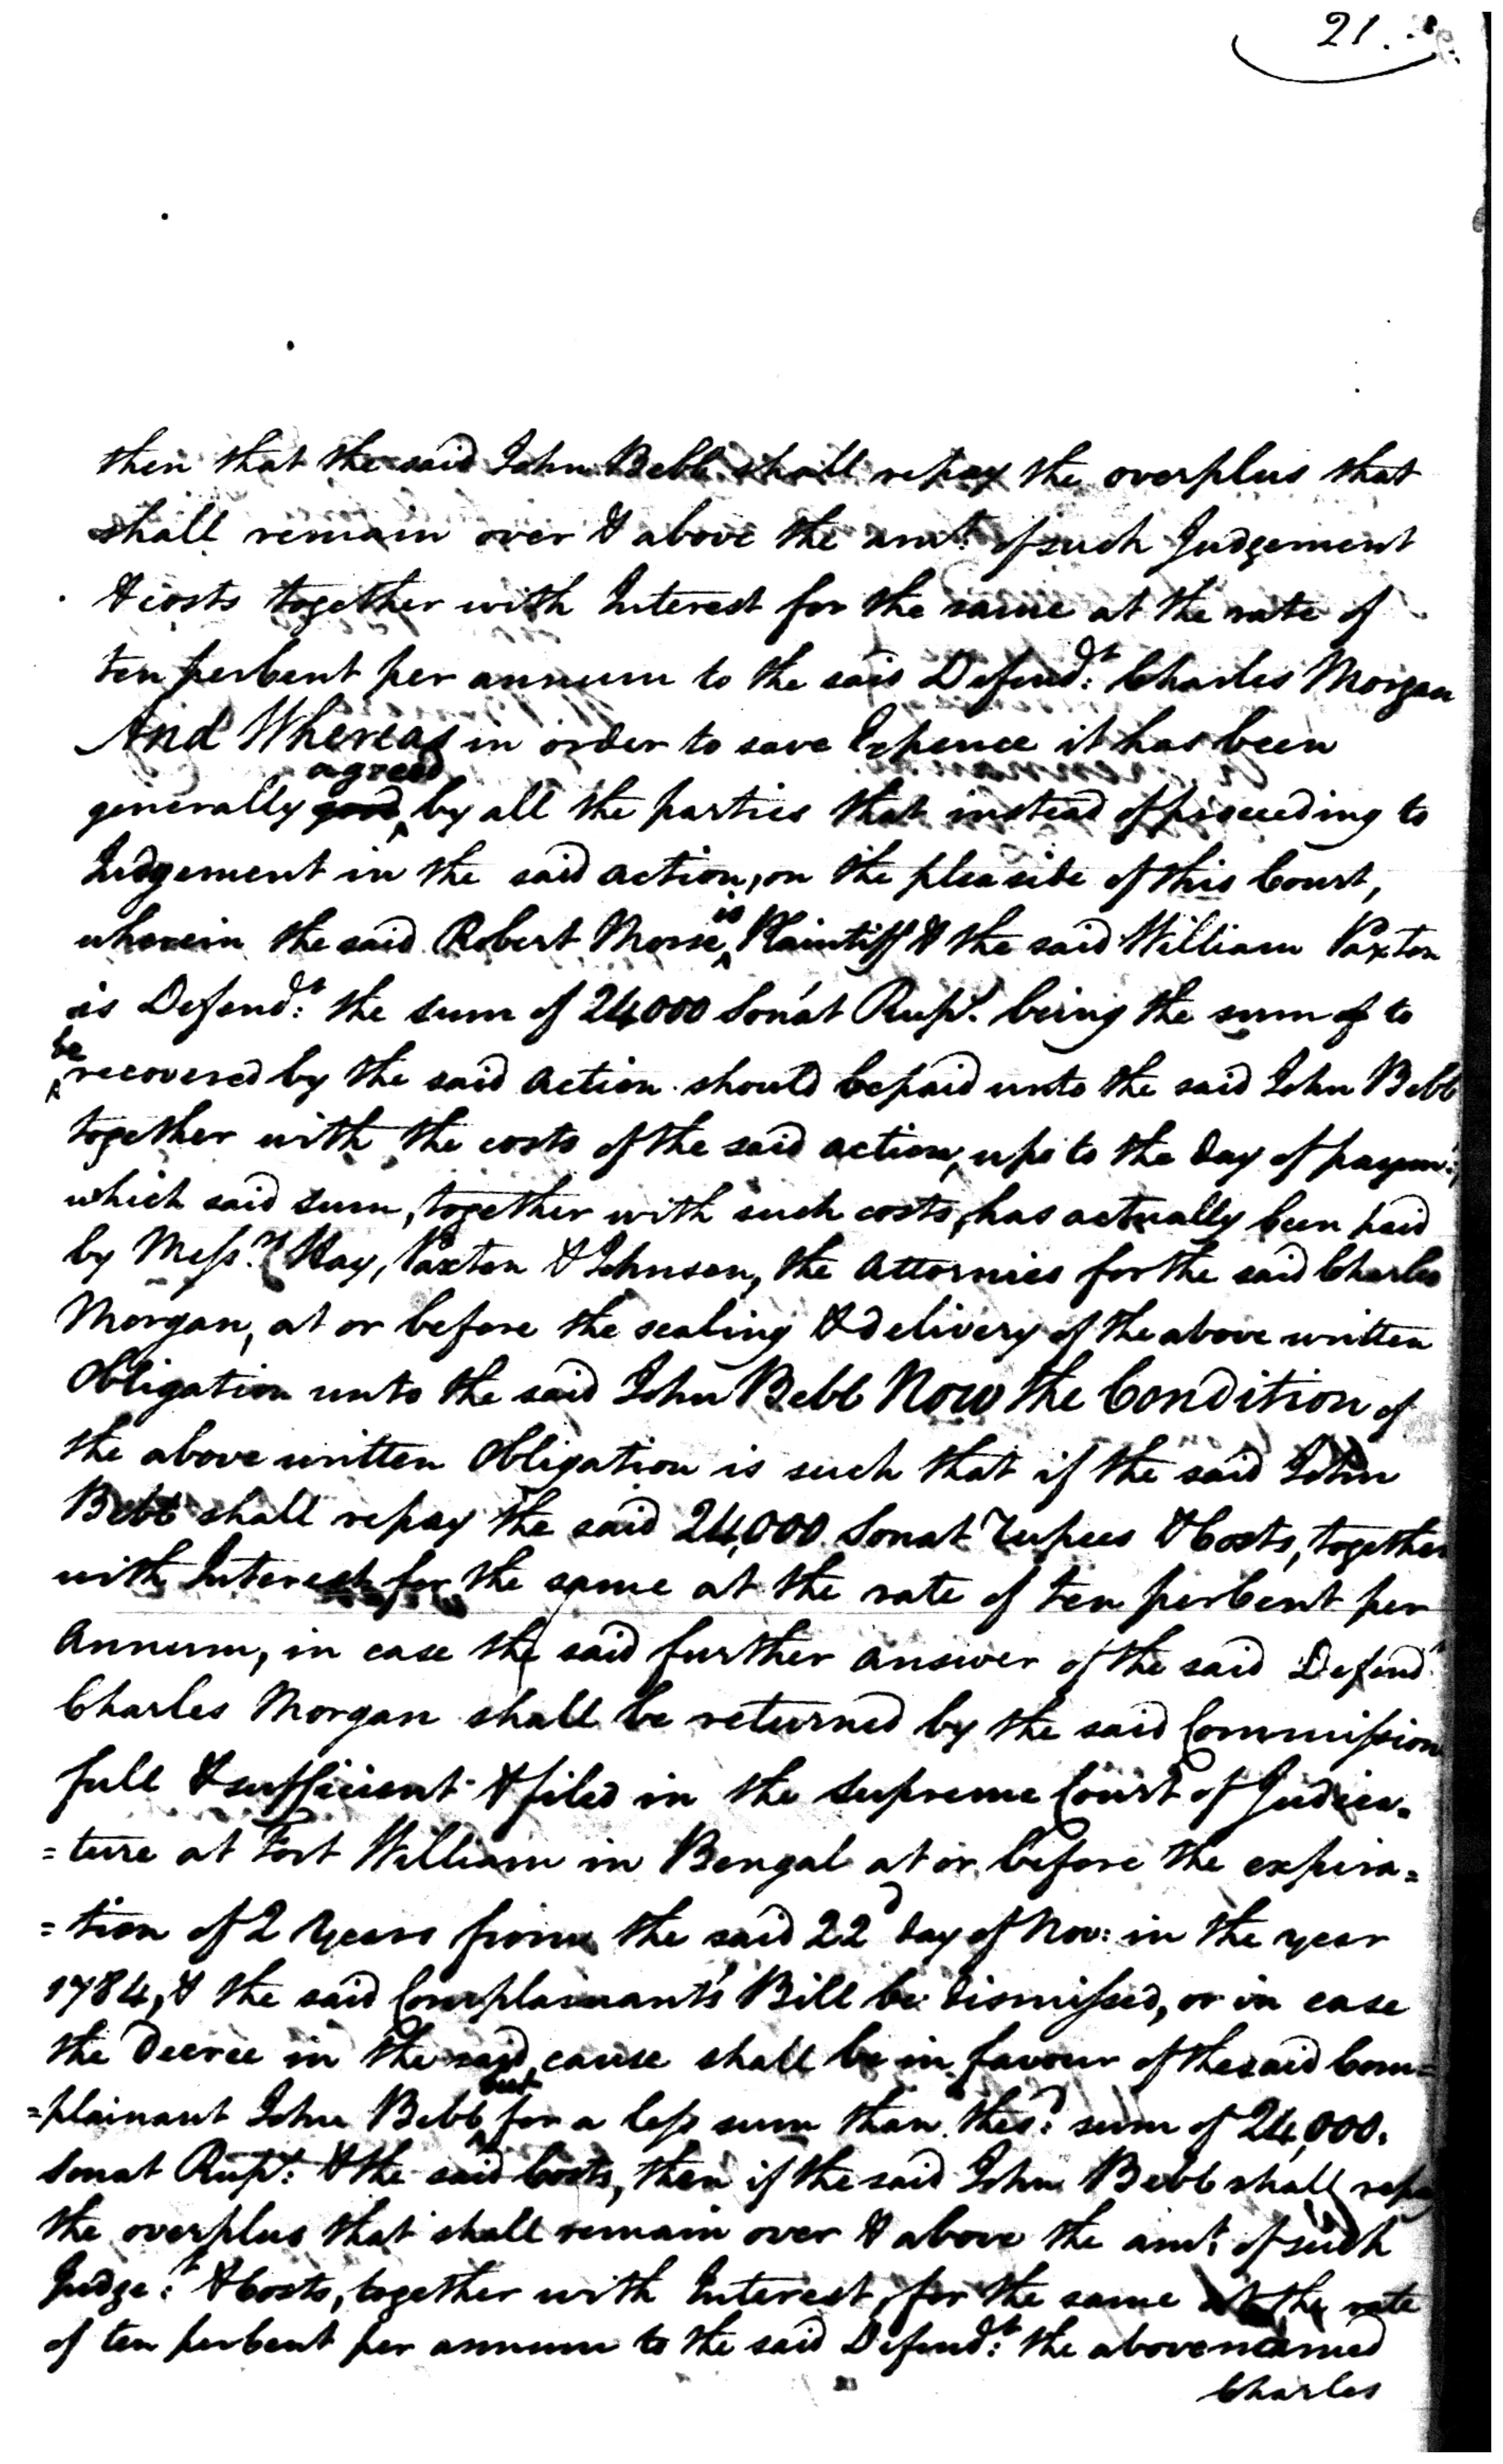 21.
then that the said John Bebb shall repay the overplus that
shall remain over & above the amt. of such Judgement
& costs together with Interest for the same at the rate of
ten perCent per annum to the said Defend:t Charles Morgan
And Whereas in order to save Expence it has been
generally good agreed by all the parties that instead of proceeding to
Judgement in the said action, on the plea side of this Court,
wherein the said Robert Morse is Plaintiff & the said William Paxton
is Defend:t the sum of 24000 Sonat Rups. being the sum of to
be recovered by the said action should be paid unto the said John Bebb
together with the costs of the said action, up to the day of paym:t,
which said sum, together with such costs, has actually been paid
by Mess.rs Hay, Paxton & Johnson, the Attornies for the said Charles
Morgan, at or before the sealing & delivery of the above written
Obligation unto the said John Bebb Now the Condition of
the above written Obligation is such that if the said John
Bebb shall repay the said 24,000 Sonat rupees & Costs, together
with Interest for the same at the rate of ten perCent per
Annum, in case the said further Answer of the said Defend:t
Charles Morgan shall be returned by the said Commission
full & sufficient & filed in the Supreme Court of Judica=
=ture at Fort William in Bengal at or before the expira=
=tion of 2 Years from the said 22d day of Nov: in the year
1784, & the said Complainant's Bill be dismissed, or in case
the Decree in the said cause shall be in favour of the said Com=
=plainant John Bebb but for a less sum than the sd: sum of 24,000.
Sonat Rups: & the said Costs, then if the said John Bebb shall repay
the overplus that shall remain over & above the amt. of such
Judge:t & Costs, together with Interest, for the same at the rate
of ten perCent per annum to the said Defend:t the abovenamed
Charles